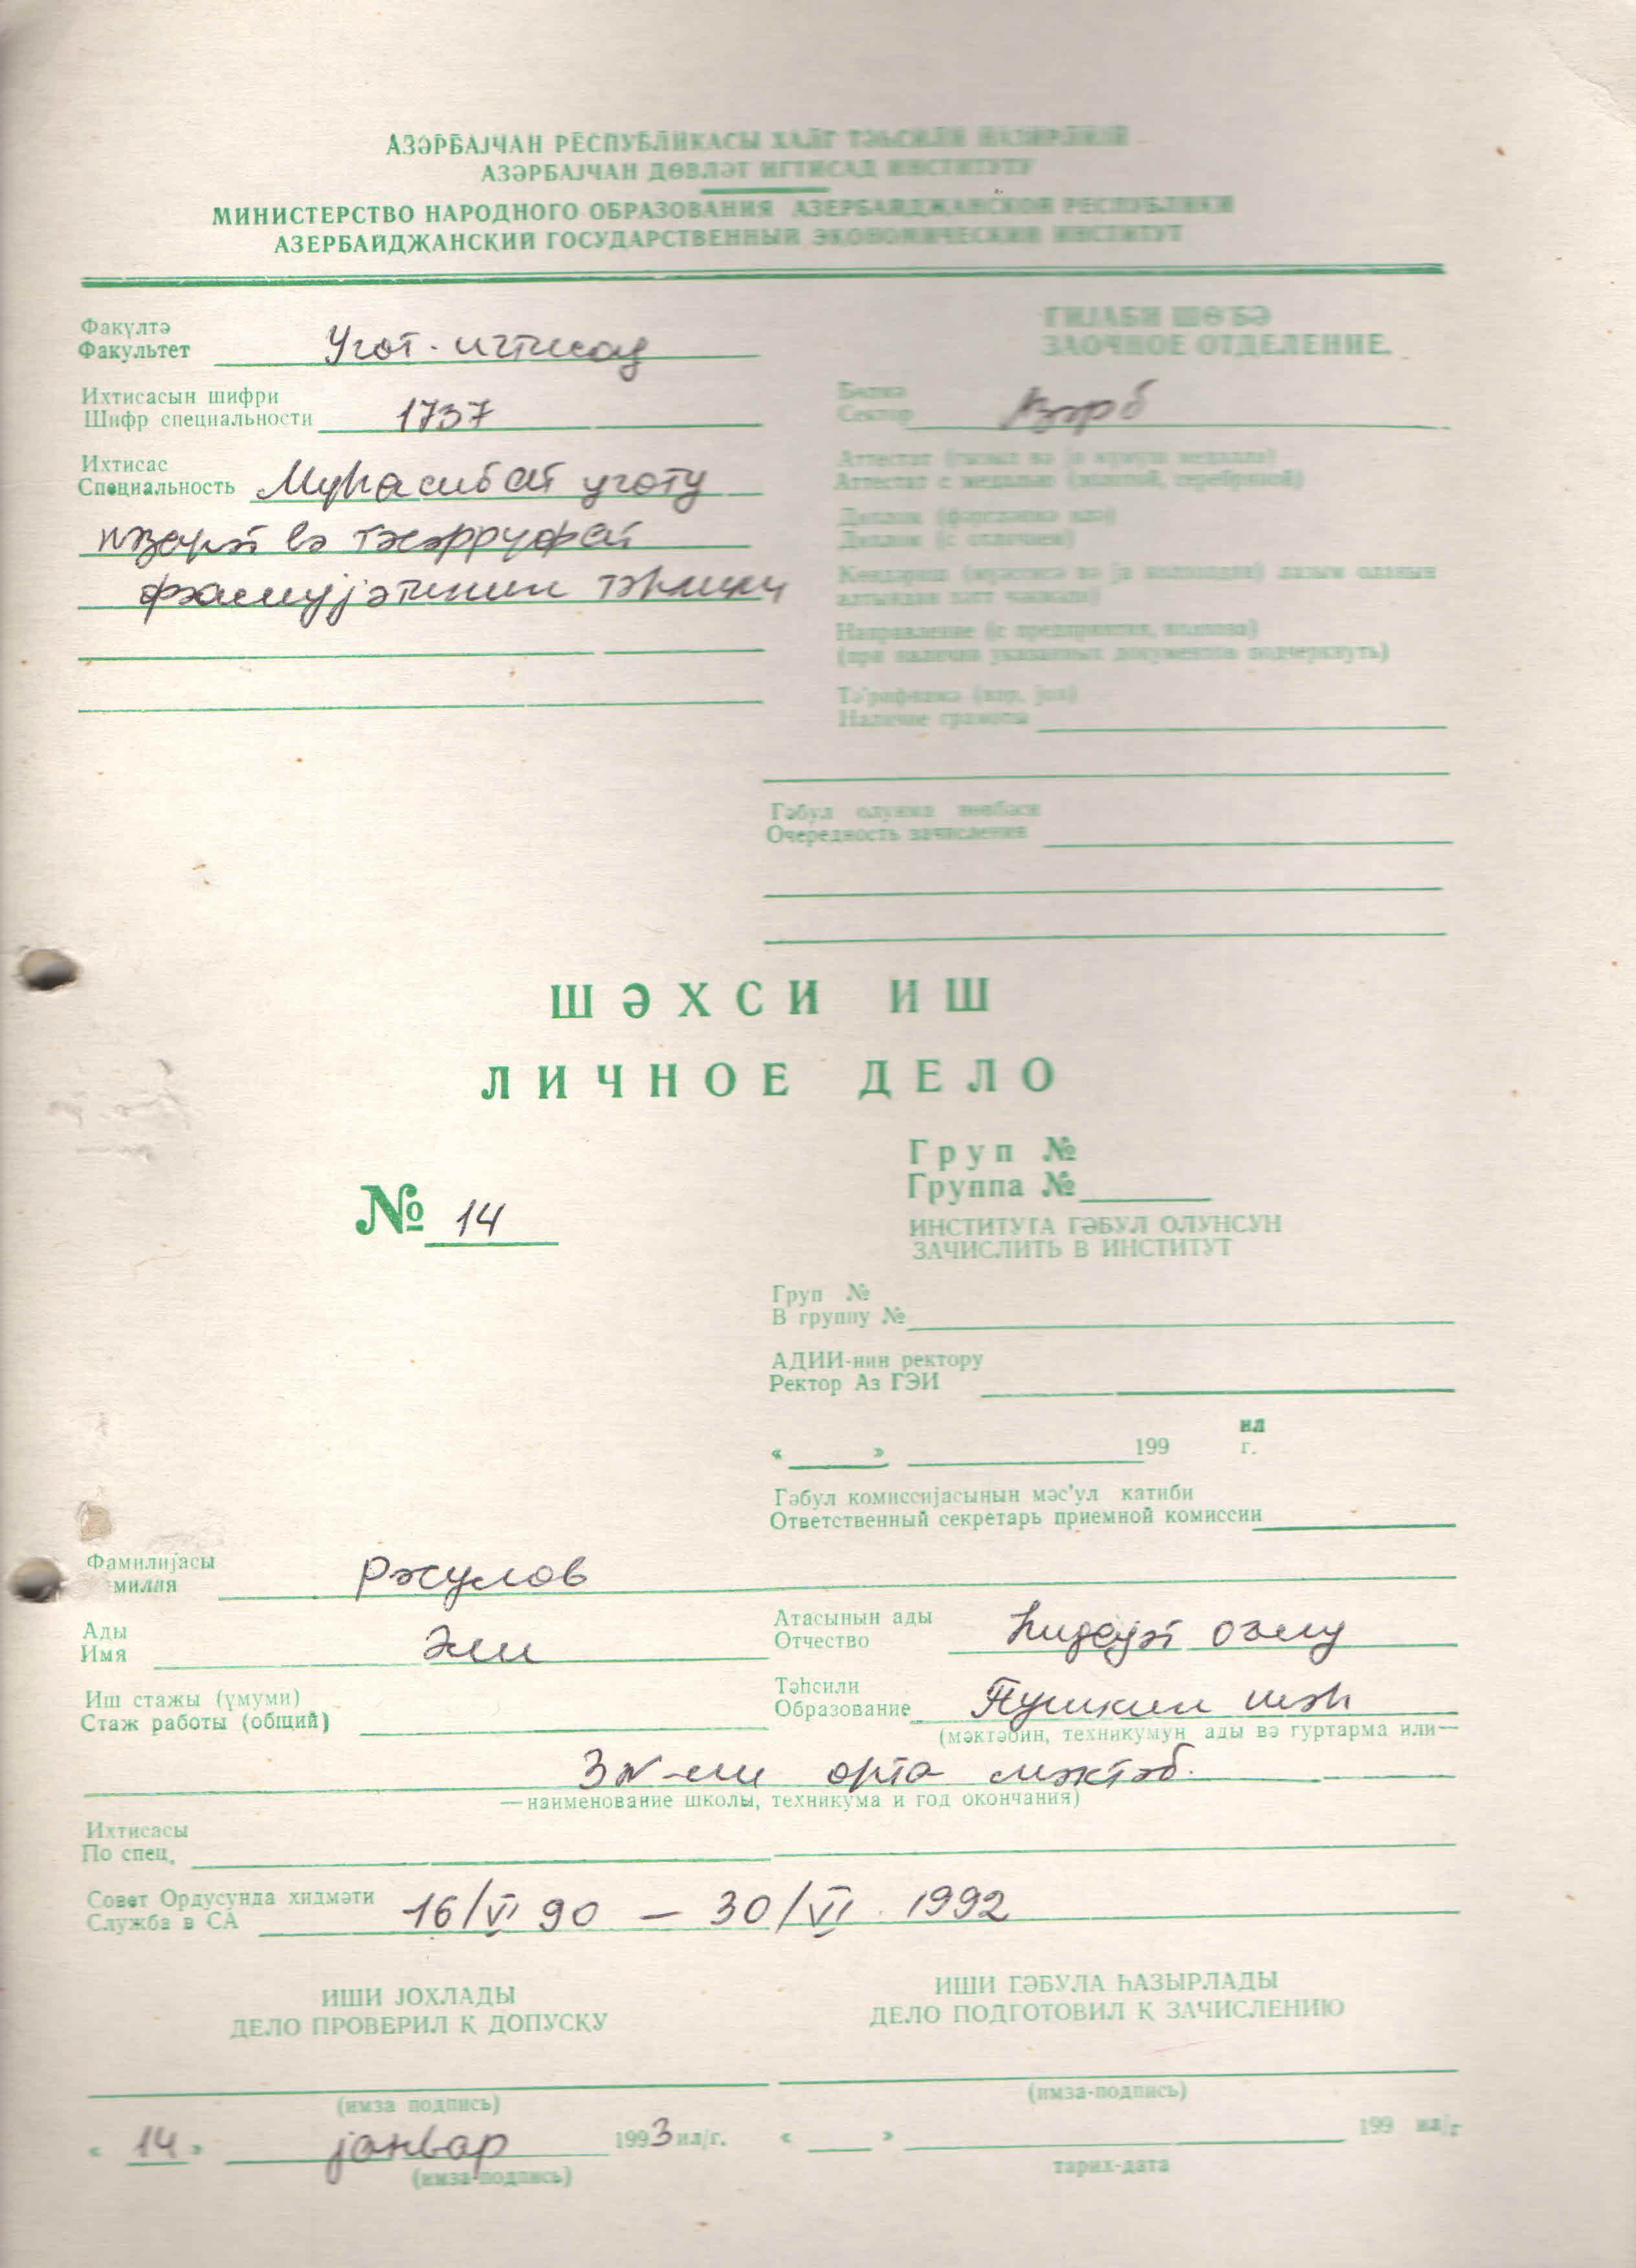 АЗӘРБАЈЧАН РЕСПУБЛИКАСЫ ХАЛГ ТӘҺСИЛИ НАЗИРЛИЈИ
АЗӘРБАЈЧАН ДӨВЛӘТ ИГТИСАД ИНСТИТУТУ
МИНИСТЕРСТВО НАРОДНОГО ОБРАЗОВАНИЯ АЗЕРБАЙДЖАНСКОЙ РЕСПУБЛИКИ
АЗЕРБАЙДЖАНСКИЙ ГОСУДАРСТВЕННЫЙ ЭКОНОМИЧЕСКИЙ ИНСТИТУТ
ГИЈАБИ ШӨ'БӘ
ЗАОЧНОЕ ОТДЕЛЕНИЕ.
Факүлтә
Факультет Учот-игтисад
Ихтисасын шифри
Шифр специальности 1737
Сектор Азәрб
Ихтисас
Специальность Муһасибат учоту
нәзарәт вә тәсәррүфат
фәалијјәтинин тәһлили
Аттестат (гызыл вә ја күмүш медалла)
Аттестат с медалью (золотой, серебряной)
Диплом (фәргләнмә илә)
Диплом (с отличием)
алтындан хәтт чәкмәли)
Направление (с предприятия, колхоза)
(при наличии указанных документов подчеркнуть)
Тә'рифнамә (вар, јох)
Наличие грамоты
Гәбул олунма нөвбәси
Очередность зачисления
ШӘХСИ ИШ
ЛИЧНОЕ ДЕЛО
№ 14
Груп №
Группа №
ИНСТИТУТА ГӘБУЛ ОЛУНСУН
ЗАЧИСЛИТЬ В ИНСТИТУТ
Груп №
В группу №
АДИИ-нин ректору
Ректор Аз ГЭИ
ил
« » 199 г.
Гәбул комиссијасынын мәс'ул катиби
Ответственный секретарь приемной комиссии
Фамилијасы
милия Рәсулов
Ады
Имя Әли
Атасынын ады
Отчество Һидајәт оғлу
Иш стажы (үмуми)
Стаж работы (общий)
Тәһсили
Образование Пушкин шәһ
(мәктәбин, техникумун ады вә гуртарма или—
3 №-ли орта мәктәб.
—наименование школы, техникума и год окончания)
Ихтисасы
По спец.
Совет Ордусунда хидмәти
Служба в СА 16/VI 90 — 30/VI. 1992
ИШИ ЈОХЛАДЫ
ДЕЛО ПРОВЕРИЛ К ДОПУСКУ
(имза подпись)
« 14 » јанвар 1993 ил/г.
(имза-подпись)
ИШИ ГӘБУЛА ҺАЗЫРЛАДЫ
ДЕЛО ПОДГОТОВИЛ К ЗАЧИСЛЕНИЮ
(имза-подпись)
« » 199 ил/г
тарих-дата